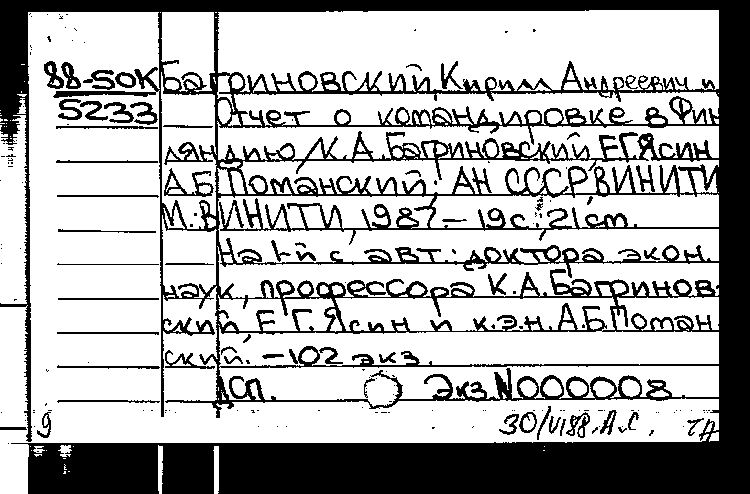 88-SOK Багриновский, Кирилл Андреевич и
5233 Отчет о командировке в Фин
ляндию / К.А.Багриновский, Е.Г.Ясин
А.Б Поманский; АН СССР, ВИНИТИ
М.: ВИНИТИ, 1987.- 19с.; 21 cm.
На 1-й с авт.: доктора экон.
наук, профессора К.А.Багринов-
ский, Е.Г.Ясин и к.э.н. А.Б.Поман
ский. - 102 экз.
ДСП. Экз.N000008.
9 30/VI 88. А.С.